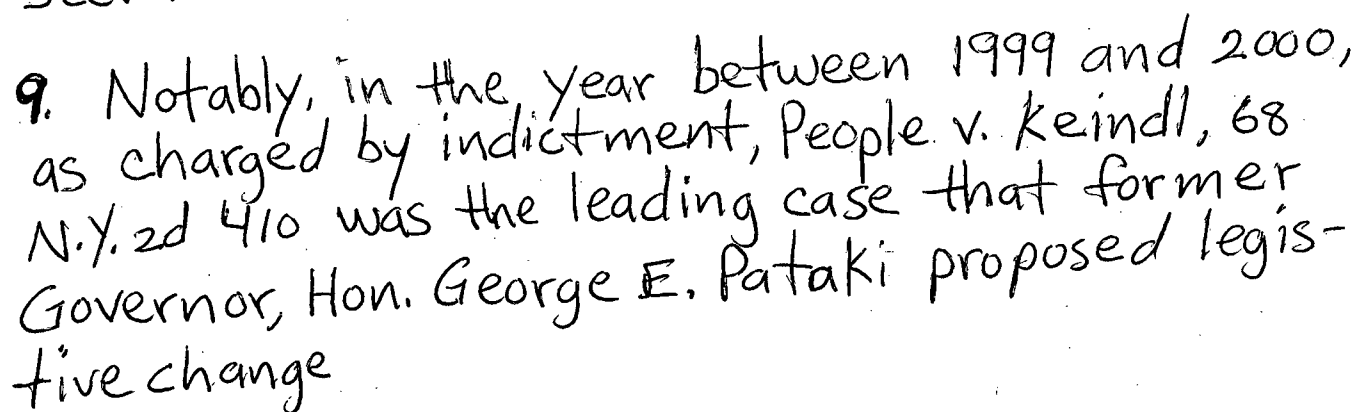 9. Notably, in the, year between 1999 and 2000,
as charged by indictment, People v. Keindl, 68
N.Y. 2d 410 was the leading case that former
Governor, Hon. George E. Pataki proposed legis-
tive change